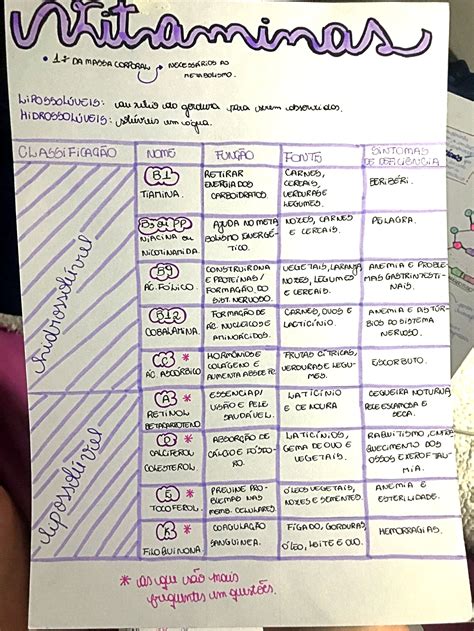 Vitaminas
• 1% DA MASSA CORPORAL → NECESSÁRIOS AO
METABOLISMO.
LIPOSSOLÚVEIS: gordura para serem absorvidas.
HIDROSSOLÚVEIS: solúveis em água.
CLASSIFICAÇÃO NOME FUNÇÃO FONTE SINTOMAS
DE DEFICIÊNCIA
hidrossolúvel
B1
TIAMINA.
RETIRAR
ENERGIA DOS
CARBOIDRATOS.
CARNES,
CEREAIS,
VERDURAS E
LEGUMES.
BERIBÉRI.
B3 ou PP
NIACINA OU
NICOTINAMIDA
AJUDA NO META
BOLISMO ENERGÉ-
TICO.
NOZES, CARNES
E CEREAIS.
PELAGRA.
B9
ÁC. FÓLICO.
CONSTRUIR DNA
E PROTEÍNAS/
FORMAÇÃO DO
SIST. NERVOSO.
VEGETAIS, LARANJA
NOZES, LEGUMES
E CEREAIS.
ANEMIA E PROBLE-
MAS GASTRINTESTI-
NAIS.
B12
COBALAMINA.
FORMAÇÃO DE
ÁC. NUCLEICOS E
AMINOÁCIDOS.
CARNES, OVOS E
LACTICÍNIO.
ANEMIA E DISTÚR-
BIOS DO SISTEMA
NERVOSO.
C *
ÁC. ASCÓRBICO
HORMÔNIOS E
COLÁGENO E
AUMENTA ABS DE FE.
FRUTAS CÍTRICAS,
VERDURAS E LEGU-
MES.
ESCORBUTO.
lipossolúvel
A *
RETINOL
BETACAROTENO
ESSENCIAL P/
VISÃO E PELE
SAUDÁVEL.
LATICÍNIO
E CENOURA
CEGUEIRA NOTURNA,
PELE ESCAMOSA E
SECA.
D *
CALCIFEROL
COLESTEROL.
ABSORÇÃO DE
CÁLCIO E FÓSFO-
RO.
LATICÍNIOS,
GEMA DE OVO E
VEGETAIS.
RAQUITISMO, ENFRA
QUECIMENTO DOS
OSSOS E XEROFTAL-
MIA.
E
TOCOFEROL
PREVINE PRO-
BLEMAS NAS
MEMB. CELULARES.
ÓLEOS VEGETAIS,
NOZES E SEMENTES.
ANEMIA E
ESTERILIDADE.
K *
FILOQUINONA.
COAGULAÇÃO
SANGUÍNEA.
FÍGADO, GORDURAS,
ÓLEO, LEITE E OVO.
HEMORRAGIAS.
* as que são mais
frequentes em questões.